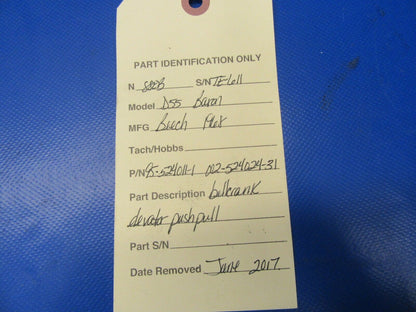 PART IDENTIFICATION ONLY
N S/N TE-611
Model D55 Baron
MFG Beech 1968
Tach/Hobbs
P/N 95-524011-1 002-524024-31
Part Description bellcrank
elevator push pull
Part S/N
Date Removed June 2017